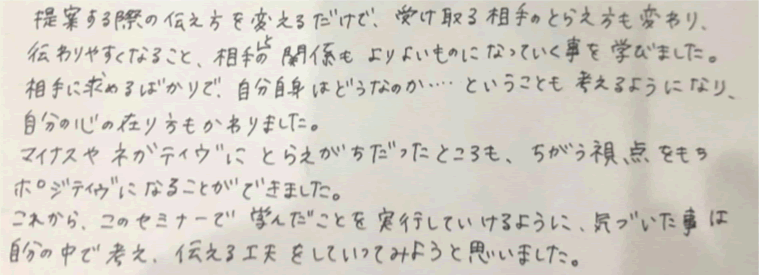 提案する際の伝え方を変えるだけで、受け取る相手のとらえ方も変わり、
伝わりやすくなること、相手との関係もよりよいものになっていく事を学びました。
相手に求めるばかりで、自分自身はどうなのか‥‥ということも考えるようになり、
自分の心の在り方もかわりました。
マイナスやネガティヴにとらえがちだったところも、ちがう視点をもち
ポジティヴになることができました。
これから、このセミナーで学んだことを実行していけるように、気づいた事は
自分の中で考え、伝える工夫をしていってみようと思いました。